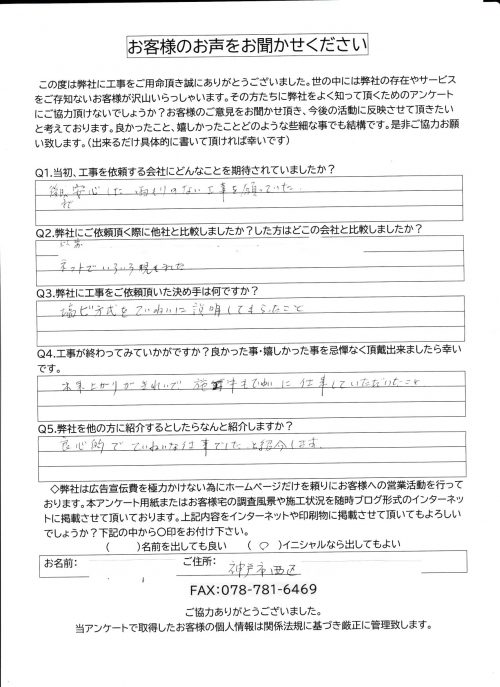 お客様のお声をお聞かせください
この度は弊社に工事をご用命頂き誠にありがとうございました。世の中には弊社の存在やサービス
をご存知ないお客様が沢山いらっしゃいます。その方たちに弊社をよく知って頂くためのアンケート
にご協力頂けないでしょうか？お客様のご意見をお聞かせ頂き、今後の活動に反映させて頂きたい
と考えております。良かったこと、嬉しかったことどのような些細な事でも結構です。是非ご協力お願
い致します。（出来るだけ具体的に書いて頂ければ幸いです）
Q1.当初、工事を依頼する会社にどんなことを期待されていましたか？
安心した雨もりのない工事を願っていた
Q2.弊社にご依頼頂く際に他社と比較しましたか？した方はどこの会社と比較しましたか？
ネットでいろいろ見ました
Q3.弊社に工事をご依頼頂いた決め手は何ですか？
塩ビ方式をていねいに説明してもらったこと
Q4.工事が終わってみていかがですか？良かった事・嬉しかった事を忌憚なく頂戴出来ましたら幸い
です。
出来上がりがきれいで 仕事していただいたこと
Q5.弊社を他の方に紹介するとしたらなんと紹介しますか？
良心的でていねいな仕事でしたと紹介します
◇弊社は広告宣伝費を極力かけない為にホームページだけを頼りにお客様への営業活動を行って
おります。本アンケート用紙またはお客様宅の調査風景や施工状況を随時ブログ形式のインターネッ
トに掲載させて頂いております。上記内容をインターネットや印刷物に掲載させて頂いてもよろしい
でしょうか？下記の中から〇印をお付け下さい。
（　　）名前を出しても良い　（ ○ ）イニシャルなら出してもよい
お名前：　ご住所：　神戸市西区
FAX:078-781-6469
ご協力ありがとうございました。
当アンケートで取得したお客様の個人情報は関係法規に基づき厳正に管理致します。